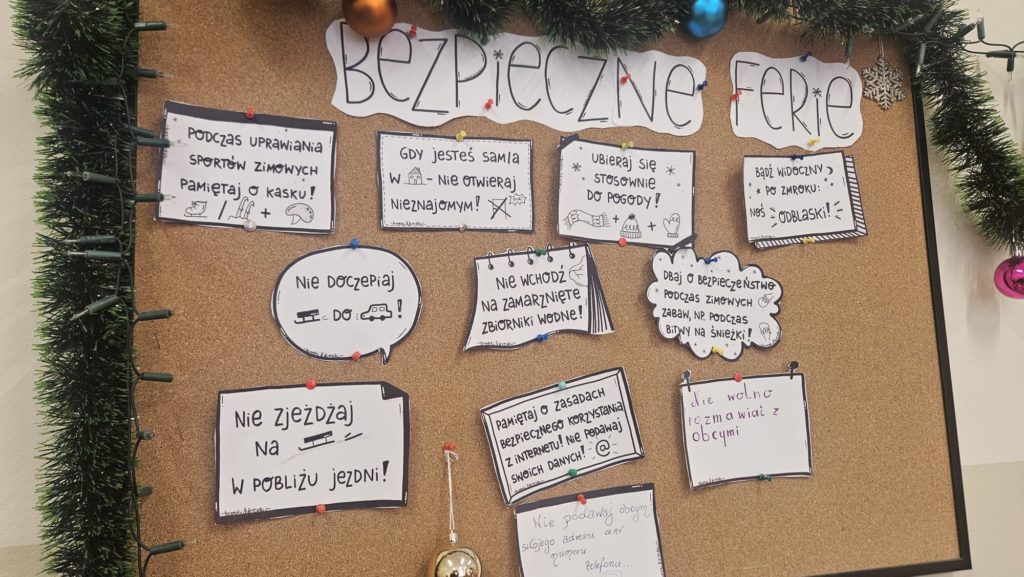 BEZPIECZNE FERIE
PODCZAS UPRAWIANIA
SPORTÓW ZIMOWYCH
PAMIĘTAJ O KASKU!
/ +
GDY JESTEŚ SAM/A
W - NIE OTWIERAJ
NIEZNAJOMYM!
UBIERAJ SIĘ
STOSOWNIE
DO POGODY!
+ +
BĄDŹ WIDOCZNY
PO ZMROKU:
NOŚ ODBLASKI!
NIE DOCZEPIAJ
DO !
NIE WCHODŹ
NA ZAMARZNIĘTE
ZBIORNIKI WODNE!
DBAJ O BEZPIECZEŃSTWO
PODCZAS ZIMOWYCH
ZABAW, NP. PODCZAS
BITWY NA ŚNIEŻKI!
NIE ZJEŻDŻAJ
NA
W POBLIŻU JEZDNI!
PAMIĘTAJ O ZASADACH
BEZPIECZNEGO KORZYSTANIA
Z INTERNETU! NIE PODAWAJ
SWOICH DANYCH! @
Nie wolno
rozmawiać z
obcymi
Nie podawaj obcym
swojego adresu ani
numeru
telefonu...